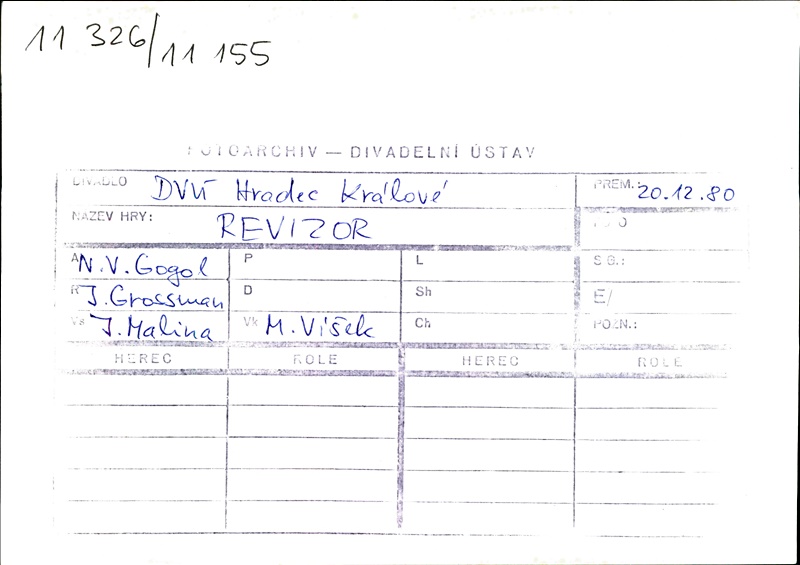 11 326/11 155
FOTOARCHIV — DIVADELNÍ ÚSTAV
DIVADLO DVÚ Hradec Králové PREM.: 20.12.80
NÁZEV HRY: REVIZOR FOTO
A N.V. Gogol P L S G.:
R J. Grossman D Sh E/
Vs J. Malina Vk M. Višek Ch POZN.:
HEREC ROLE HEREC ROLE